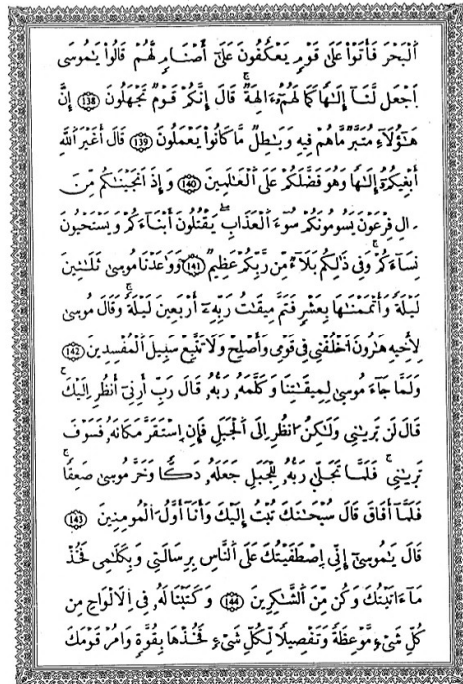 اَلْبَحْرَ فَأَتَوْا عَلَىٰ قَوْمٍ يَعْكُفُونَ عَلَىٰ أَصْنَامٍ لَّهُمْ قَالُوا يَٰمُوسَى
اَجْعَل لَّنَا إِلَٰهًا كَمَا لَهُمْ ءَالِهَةٌ قَالَ إِنَّكُمْ قَوْمٌ تَجْهَلُونَ 138 إِنَّ
هَٰؤُلَاءِ مُتَبَّرٌ مَّا هُمْ فِيهِ وَبَٰطِلٌ مَّا كَانُوا يَعْمَلُونَ 139 قَالَ أَغَيْرَ اَللَّهِ
أَبْغِيكُمْ إِلَٰهًا وَهُوَ فَضَّلَكُمْ عَلَى اَلْعَٰلَمِينَ 140 وَإِذَ اَنجَيْنَٰكُم مِّنَ
اٰلِ فِرْعَوْنَ يَسُومُونَكُمْ سُوٓءَ اَلْعَذَابِ يَقْتُلُونَ أَبْنَآءَكُمْ وَيَسْتَحْيُونَ
نِسَآءَكُمْ وَفِي ذَٰلِكُم بَلَآءٌ مِّن رَّبِّكُمْ عَظِيمٌ 141 وَوَٰعَدْنَا مُوسَىٰ ثَلَٰثِينَ
لَيْلَةً وَأَتْمَمْنَٰهَا بِعَشْرٍ فَتَمَّ مِيقَٰتُ رَبِّهِۦٓ أَرْبَعِينَ لَيْلَةً وَقَالَ مُوسَىٰ
لِأَخِيهِ هَٰرُونَ اَخْلُفْنِي فِي قَوْمِي وَأَصْلِحْ وَلَا تَتَّبِعْ سَبِيلَ اَلْمُفْسِدِينَ 142
وَلَمَّا جَآءَ مُوسَىٰ لِمِيقَٰتِنَا وَكَلَّمَهُۥ رَبُّهُۥ قَالَ رَبِّ أَرِنِيٓ أَنظُرِ اِلَيْكَ
قَالَ لَن تَرَىٰنِي وَلَٰكِنُ اُنظُرِ اِلَى اَلْجَبَلِ فَإِنِ اِسْتَقَرَّ مَكَانَهُۥ فَسَوْفَ
تَرَىٰنِي فَلَمَّا تَجَلَّىٰ رَبُّهُۥ لِلْجَبَلِ جَعَلَهُۥ دَكًّا وَخَرَّ مُوسَىٰ صَعِقًا
فَلَمَّآ أَفَاقَ قَالَ سُبْحَٰنَكَ تُبْتُ إِلَيْكَ وَأَنَآ أَوَّلُ اَلْمُومِنِينَ 143
قَالَ يَٰمُوسَىٰٓ إِنِّيَ اِصْطَفَيْتُكَ عَلَى اَلنَّاسِ بِرِسَٰلَتِي وَبِكَلَٰمِي فَخُذْ
مَآ ءَاتَيْتُكَ وَكُن مِّنَ اَلشَّٰكِرِينَ 144 وَكَتَبْنَا لَهُۥ فِي اِلَالْوَاحِ مِن
كُلِّ شَيْءٍ مَّوْعِظَةً وَتَفْصِيلًا لِّكُلِّ شَيْءٍ فَخُذْهَا بِقُوَّةٍ وَامُرْ قَوْمَكَ